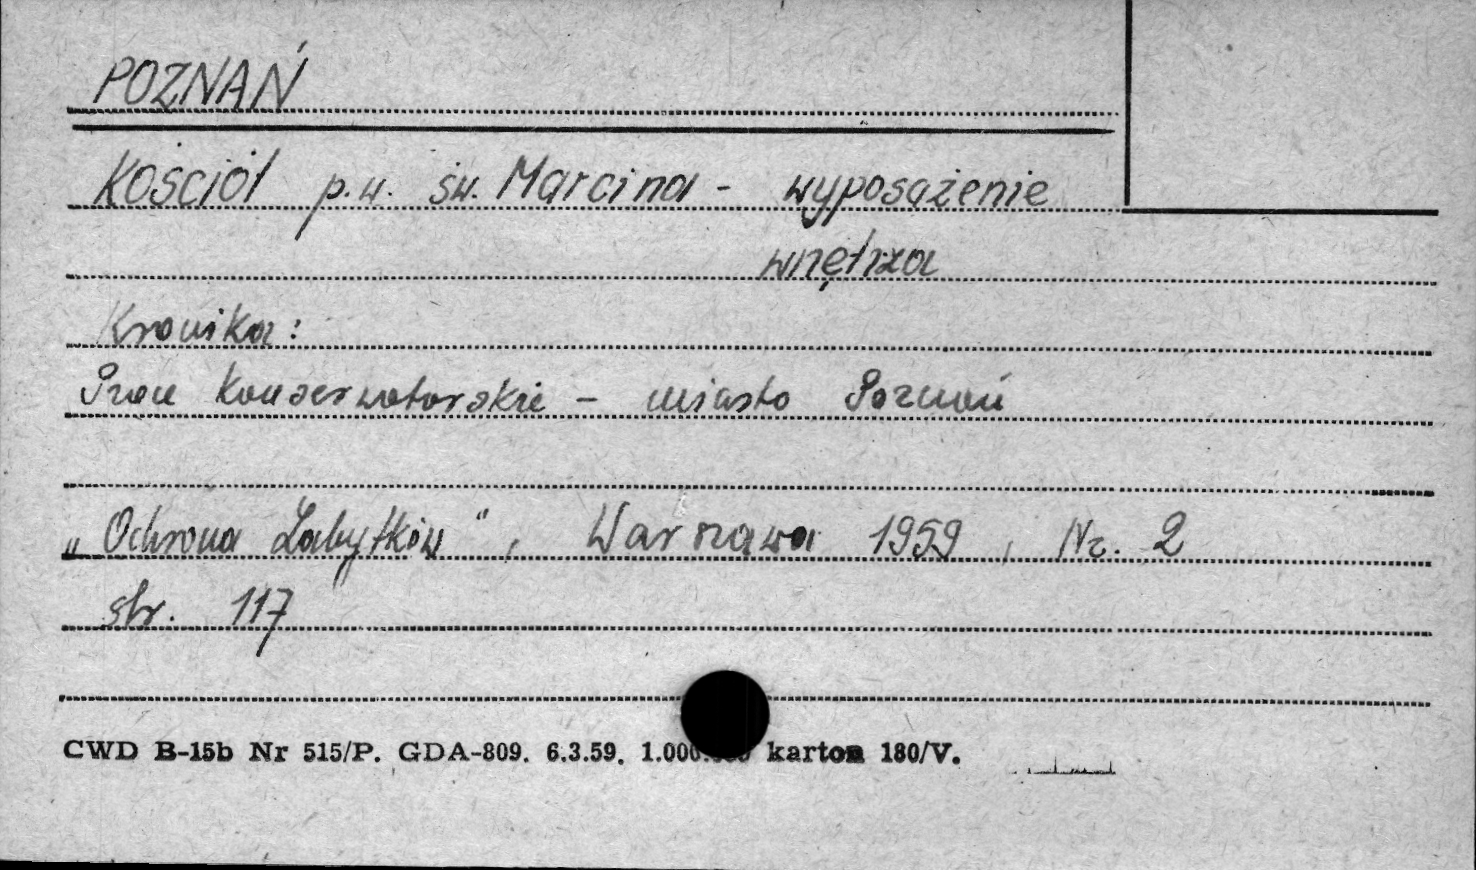 POZNAŃ
Kościół p.w. św. Marcina - wyposażenie
wnętrza
Kronika:
Prace konserwatorskie - miasto Poznań
„Ochrona Zabytków", Warszawa 1959, Nr. 2
str. 117
CWD B-15b Nr 515/P. GDA-809. 6.3.59. karton 180/V.